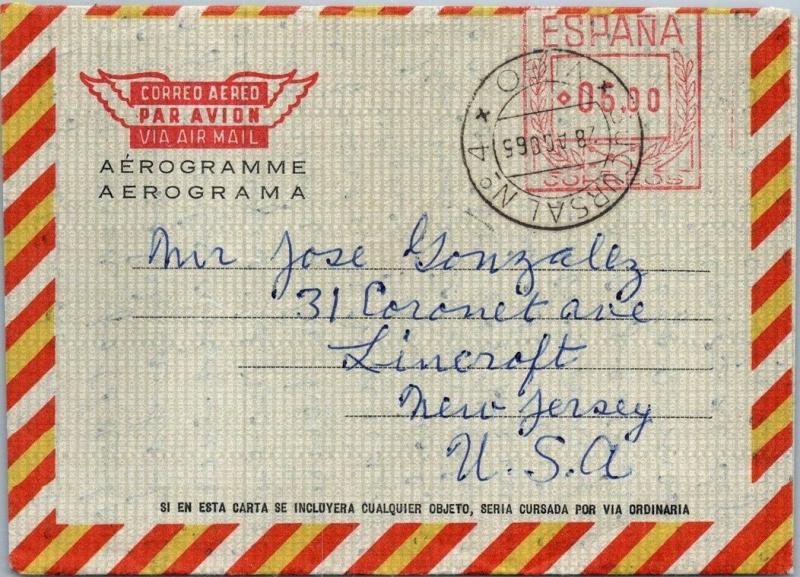 ESPAÑA
05.00
CORREOS
SUCURSAL Nº 4
28 AGO 65
VIGO
CORREO AEREO
PAR AVION
VIA AIR MAIL
AÉROGRAMME
AEROGRAMA
Mr Jose Gonzalez
31 Coronet ave
Lincroft
New Jersey
U.S.A
SI EN ESTA CARTA SE INCLUYERA CUALQUIER OBJETO, SERIA CURSADA POR VIA ORDINARIA